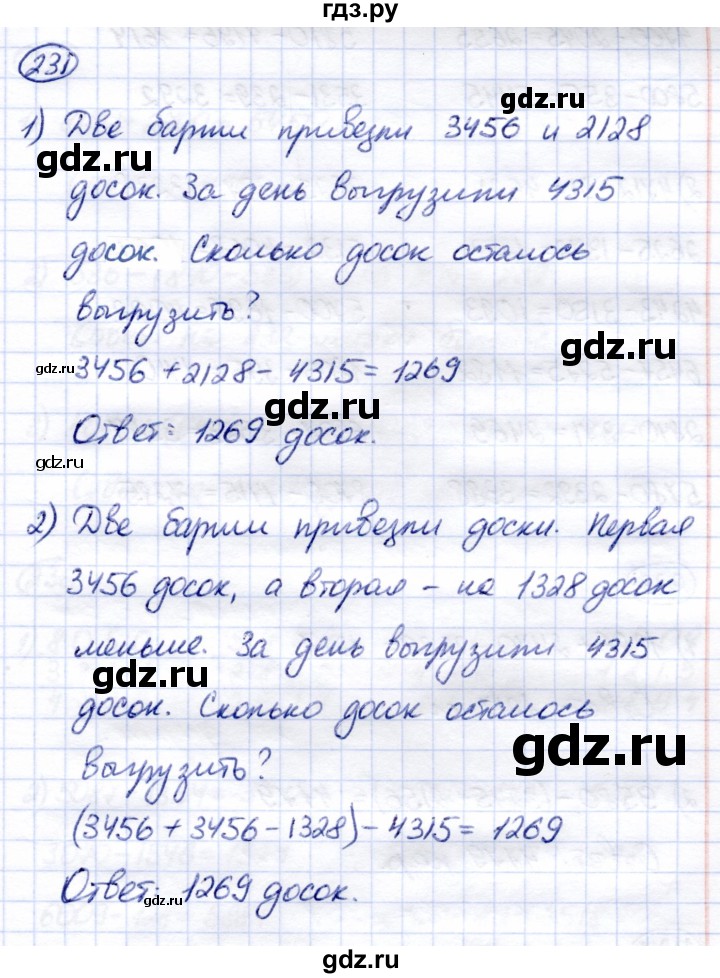 гдз.ру
231
1) Две баржи привезли 3456 и 2128
gdz.ru
gdz.ru
досок. За день выгрузили 4315
досок. Сколько досок осталось
gdz.ru
выгрузить?
gdz.ru
gdz.ru
3456 + 2128 - 4315 = 1269
gdz.ru
Ответ: 1269 досок.
gdz.ru
2) Две баржи привезли доски. Первая
3456 досок, а вторая - на 1328 досок
меньше. За день выгрузили 4315
gdz.ru
досок. Сколько досок осталось
gdz.ru
выгрузить?
(3456 + 3456 - 1328) - 4315 = 1269
Ответ: 1269 досок.
gdz.ru
gdz.ru
gdz.ru